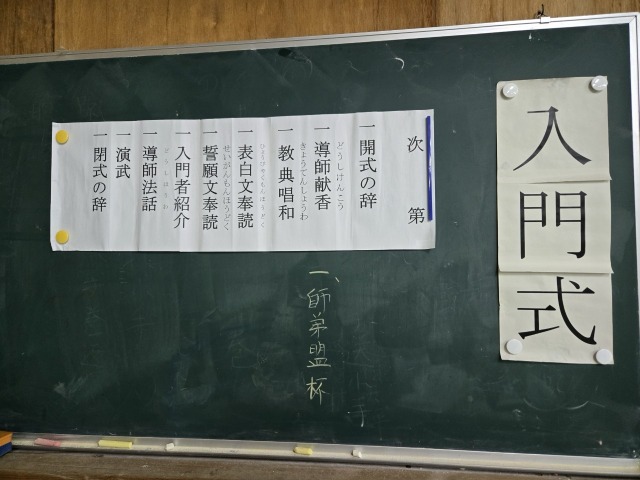 入門式
次第
一開式の辞
一導師献香
どうしけんこう
一教典唱和
きょうてんしょうわ
一表白文奉読
ひょうびゃくもんほうどく
一誓願文奉読
せいがんもんほうどく
一入門者紹介
一導師法話
どうしほうわ
一演武
一閉式の辞
一、師弟盟杯